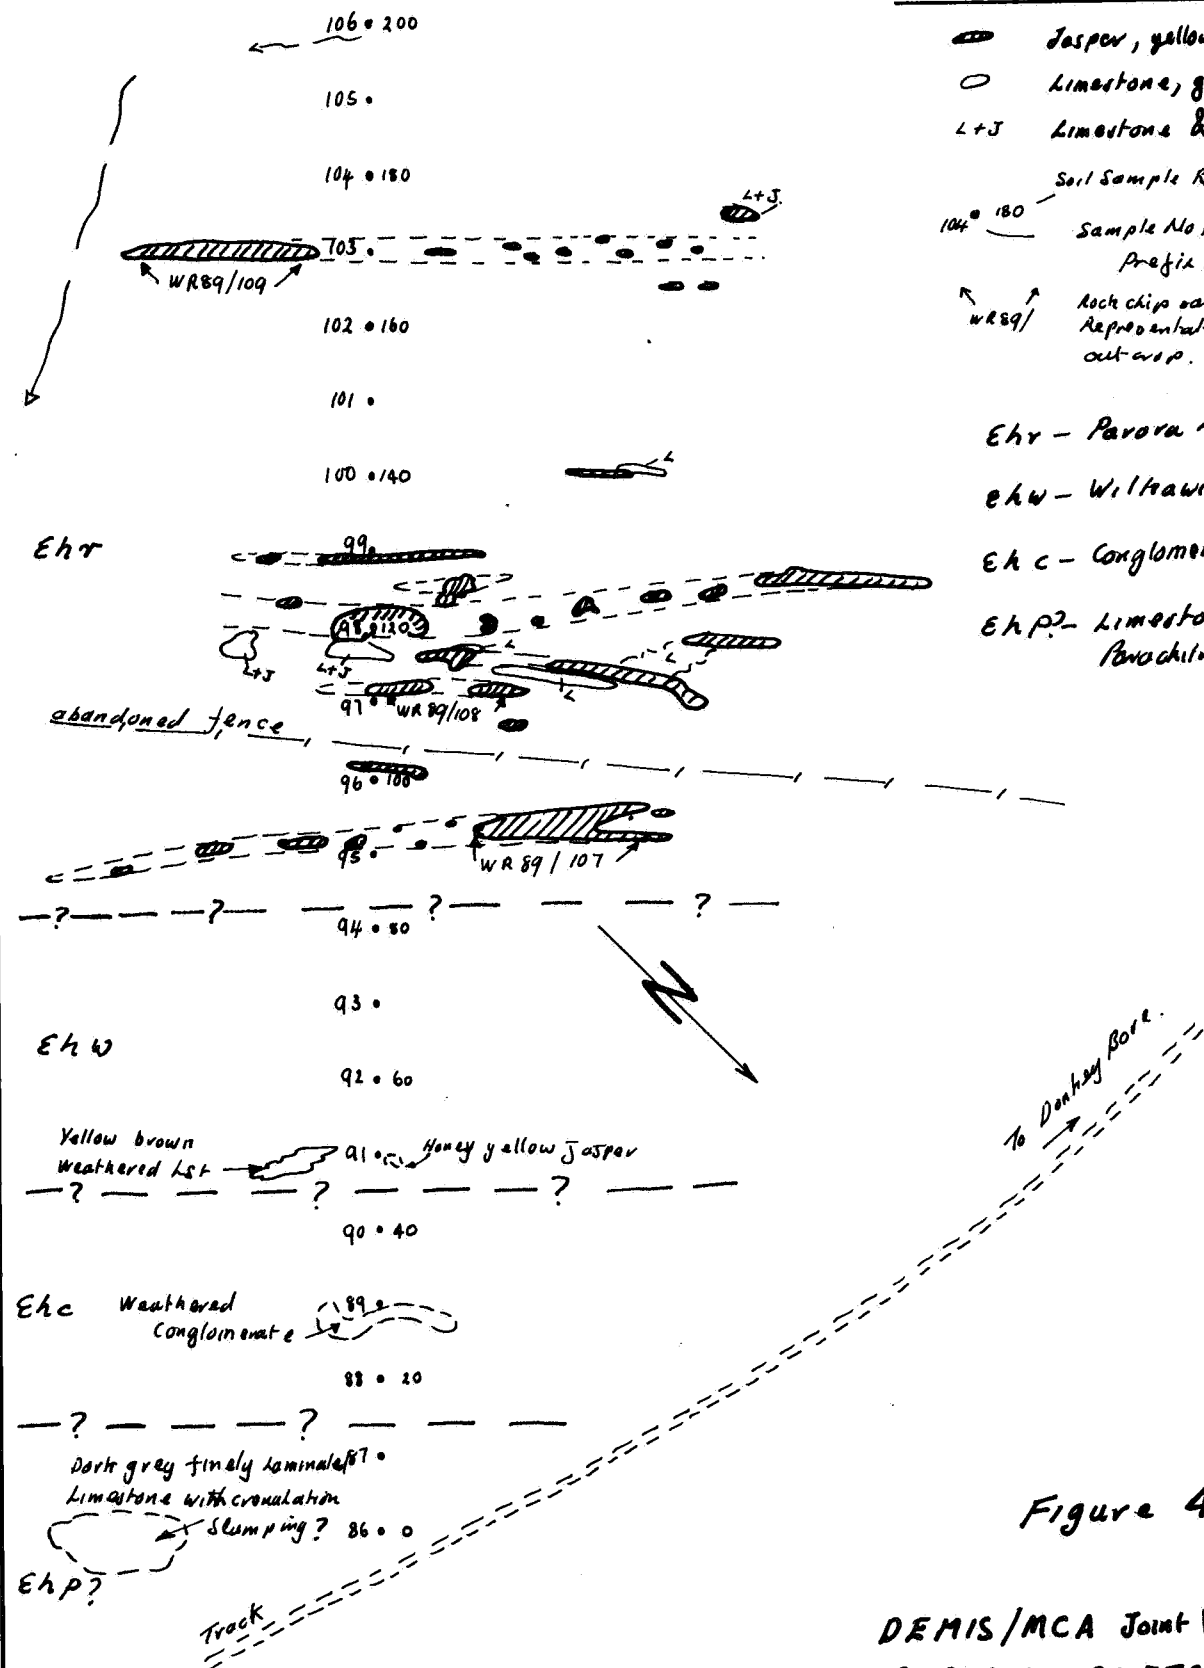 106 • 200
105 •
104 • 180
L+J
103 •
WR89/109
102 • 160
101 •
100 • 140
L
Ehr
99
98 • 120
L+J
L+J
L
L
L
97 •
WR89/108
abandoned fence
96 • 100
95 •
WR89/107
? ? ? ?
94 • 80
N
93 •
Ehw
92 • 60
Yellow brown
Weathered Lst
91 •
Honey yellow Jasper
? ? ?
90 • 40
Ehc
Weathered
Conglomerate
89 •
88 • 20
? ?
Dark grey finely Laminated
Limestone with crenulation
Slumping?
87 •
86 • 0
Ehp?
Track
To Donkey Bore.
Jasper, yellow
Limestone, g
L+J Limestone &
Soil Sample R
104 • 180
Sample No
Prefix
WR89/
Rock chip sa
Representat
outcrop.
Ehr - Parara
Ehw - Wilkawi
Ehc - Conglome
Ehp? - Limesto
Parachiln
Figure 4
DEMIS/MCA Joint